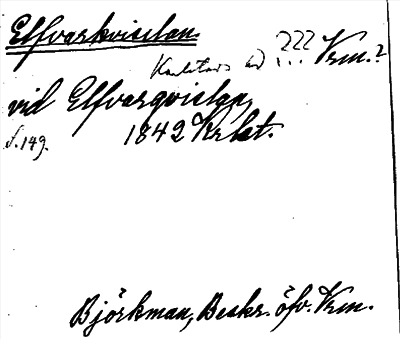 Elfvarkvislan.
??? Vrm.?
vid Elfvarqvislan,
s. 149.
1842 Krbet.
Björkman, Beskr. öfv. Vrm.